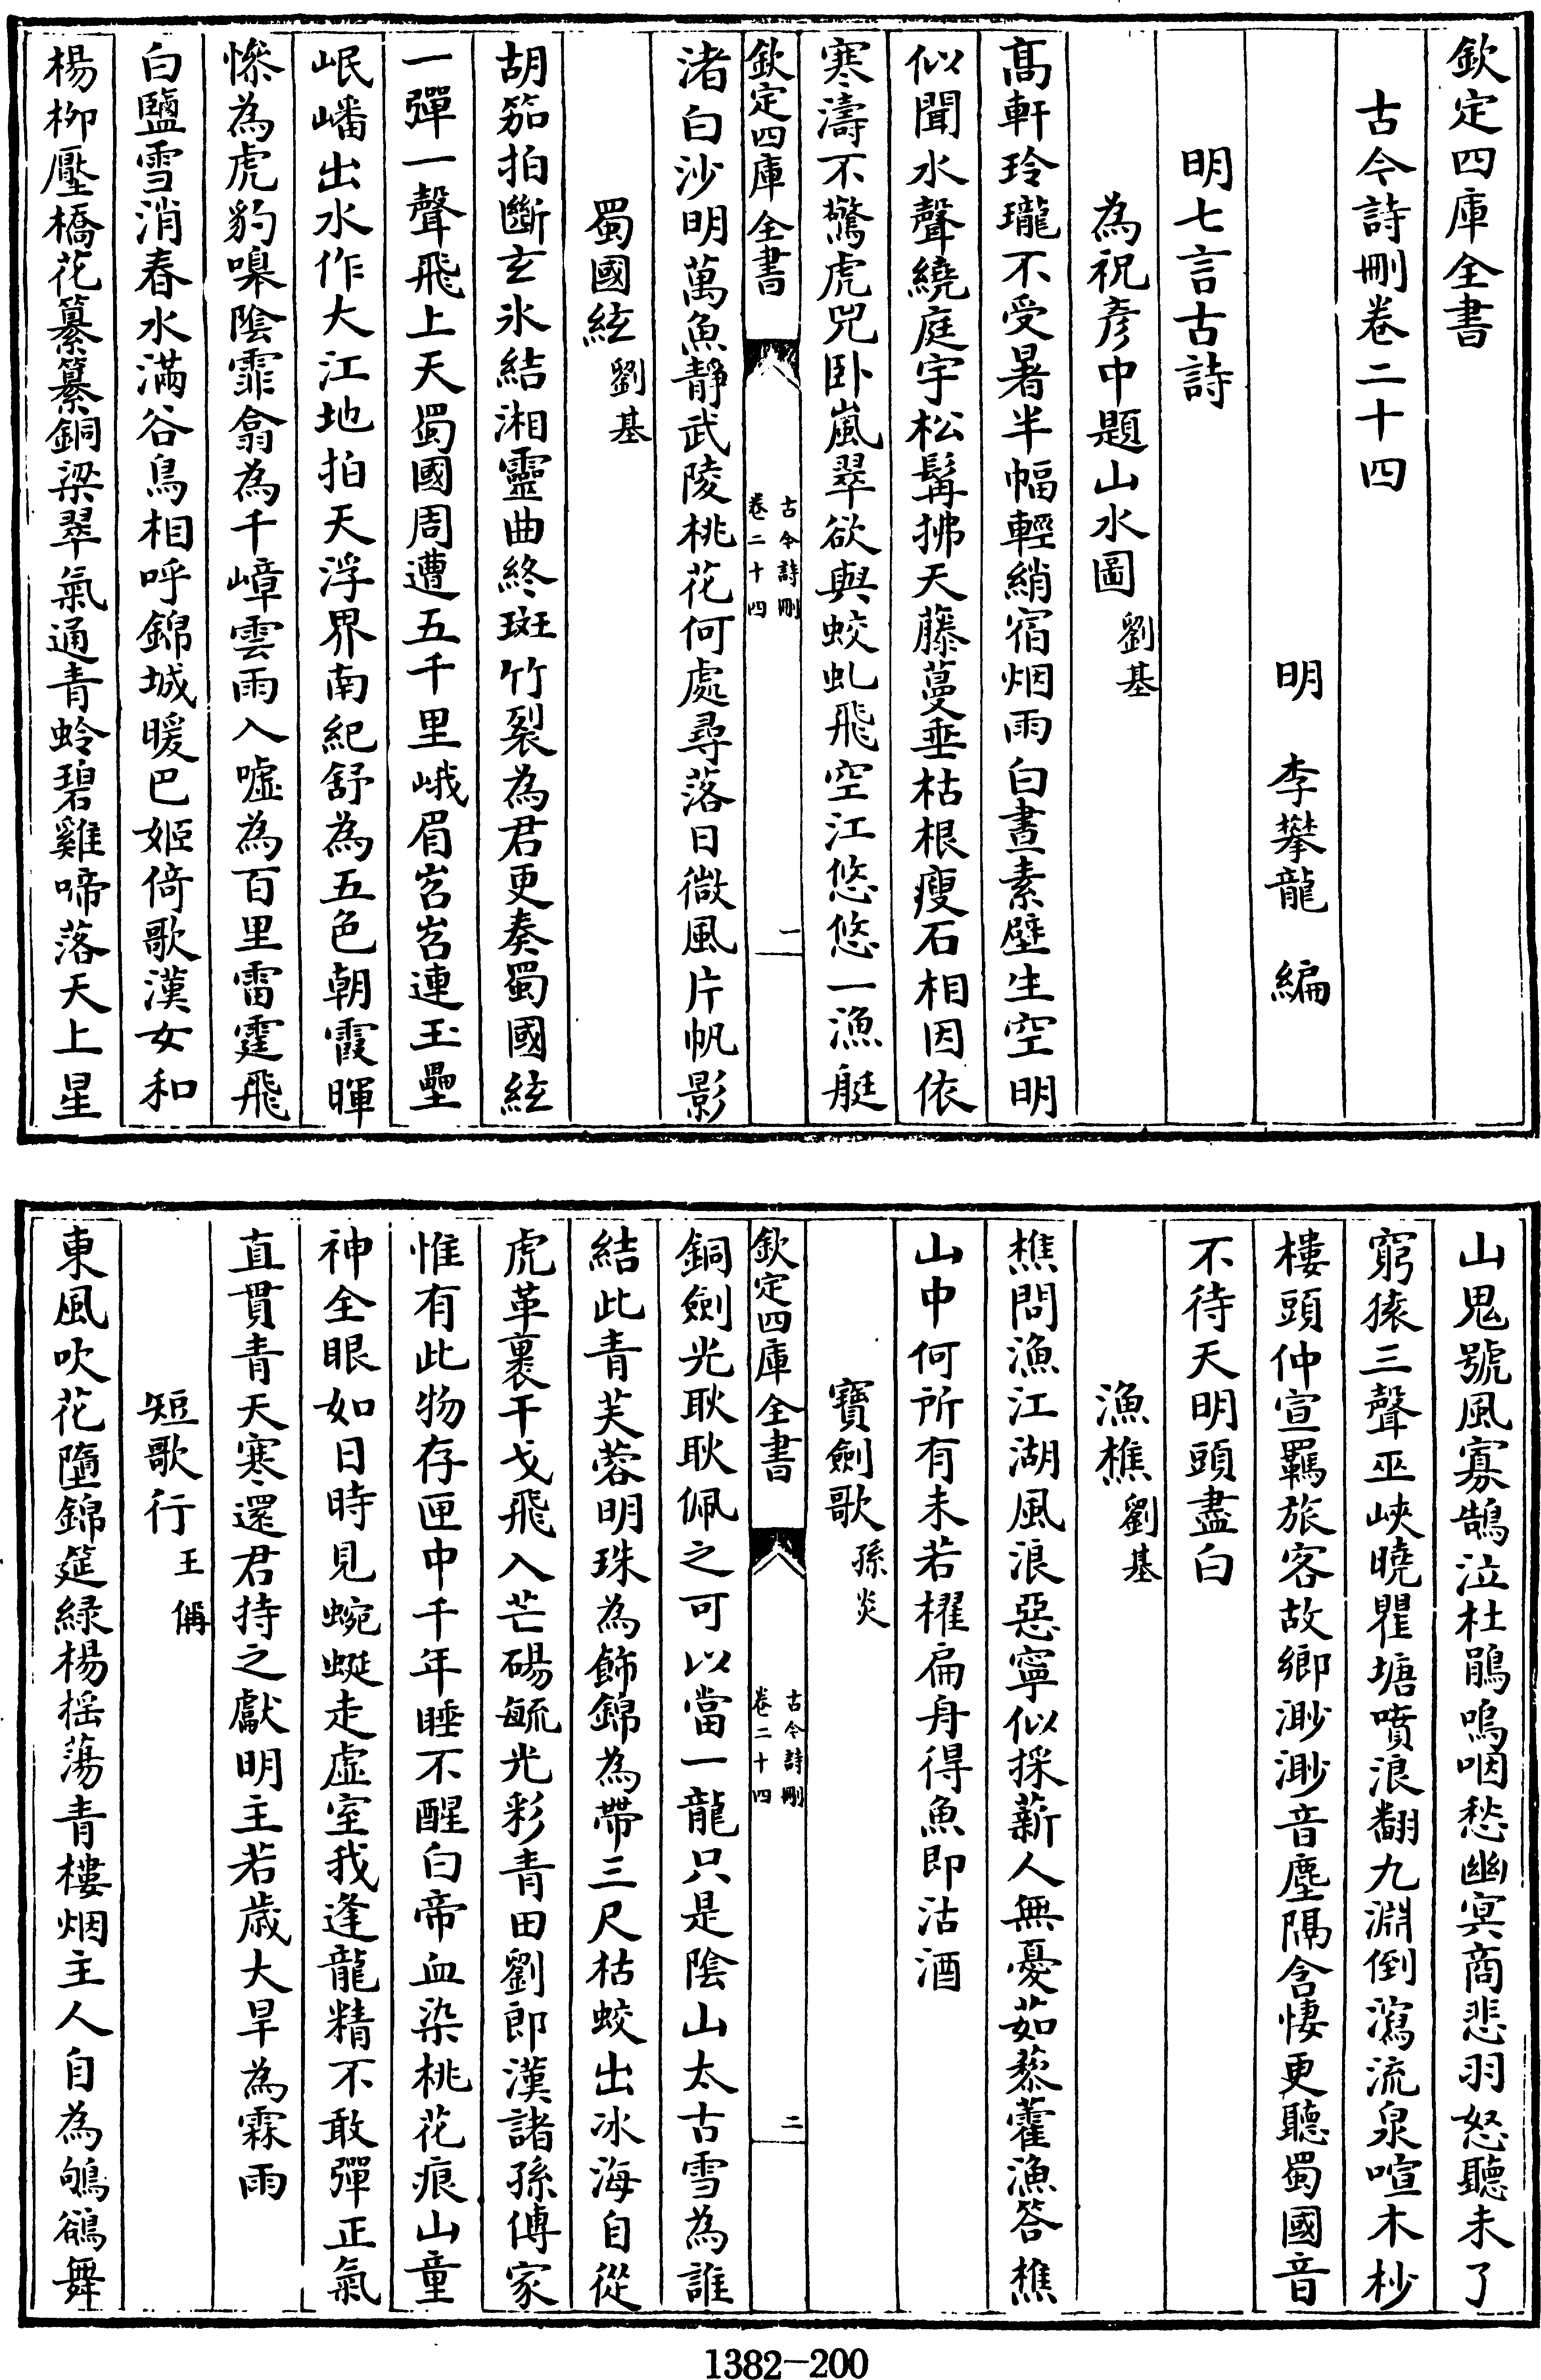 欽定四庫全書
古今詩刪卷二十四
明 李攀龍 編
明七言古詩
為祝彥中題山水圖 劉基
髙軒玲瓏不受暑半幅輕綃宿烟雨白晝素壁生空明
似聞水聲繞庭宇松髯拂天藤蔓垂枯根瘦石相因依
寒濤不驚虎兕卧嵐翠欲與蛟虬飛空江悠悠一漁艇
欽定四庫全書
古今詩刪
卷二十四
一
渚白沙明萬魚靜武陵桃花何處尋落日微風片帆影
蜀國絃 劉基
胡笳拍斷玄氷結湘靈曲終斑竹裂為君更奏蜀國絃
一彈一聲飛上天蜀國周遭五千里峨眉岧岧連玉壘
岷嶓出水作大江地拍天浮界南紀舒為五色朝霞暉
慘為虎豹嗥陰霏翕為千嶂雲雨入噓為百里雷霆飛
白鹽雪消春水滿谷鳥相呼錦城暖巴姬倚歌漢女和
楊柳壓橋花纂纂銅梁翠氣通青蛉碧雞啼落天上星
山鬼號風寡鵠泣杜鵑嗚咽愁幽冥商悲羽怒聽未了
窮猿三聲巫峽曉瞿塘噴浪翻九淵倒瀉流泉喧木杪
樓頭仲宣羈旅客故鄉渺渺音塵隔含悽更聽蜀國音
不待天明頭盡白
漁樵 劉基
樵問漁江湖風浪惡寧似採薪人無憂茹藜藿漁答樵
山中何所有未若櫂扁舟得魚即沽酒
寶劍歌 孫炎
欽定四庫全書
古今詩刪
卷二十四
二
銅劍光耿耿佩之可以當一龍只是陰山太古雪為誰
結此青芙蓉明珠為飾錦為帶三尺枯蛟出冰海自從
虎革裹干戈飛入芒碭毓光彩青田劉郎漢諸孫傅家
惟有此物存匣中千年睡不醒白帝血染桃花痕山童
神全眼如日時見蜿蜒走虛室我逢龍精不敢彈正氣
直貫青天寒還君持之獻明主若歲大旱為霖雨
短歌行 王偁
東風吹花墮錦筵綠楊搖蕩青樓烟主人自為鴝鵒舞
1382-200